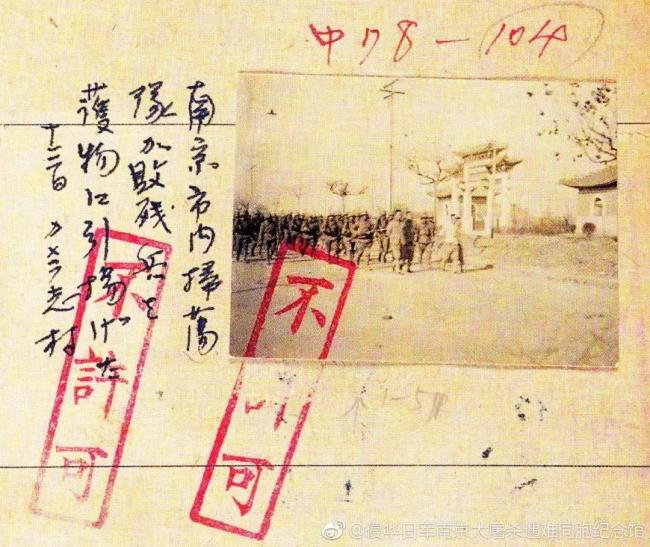 中78-104
南京市内掃蕩
隊が敗残兵と
獲物に引揚げた
志村
不許可
不許可
@侵华日军南京大屠杀遇难同胞纪念馆